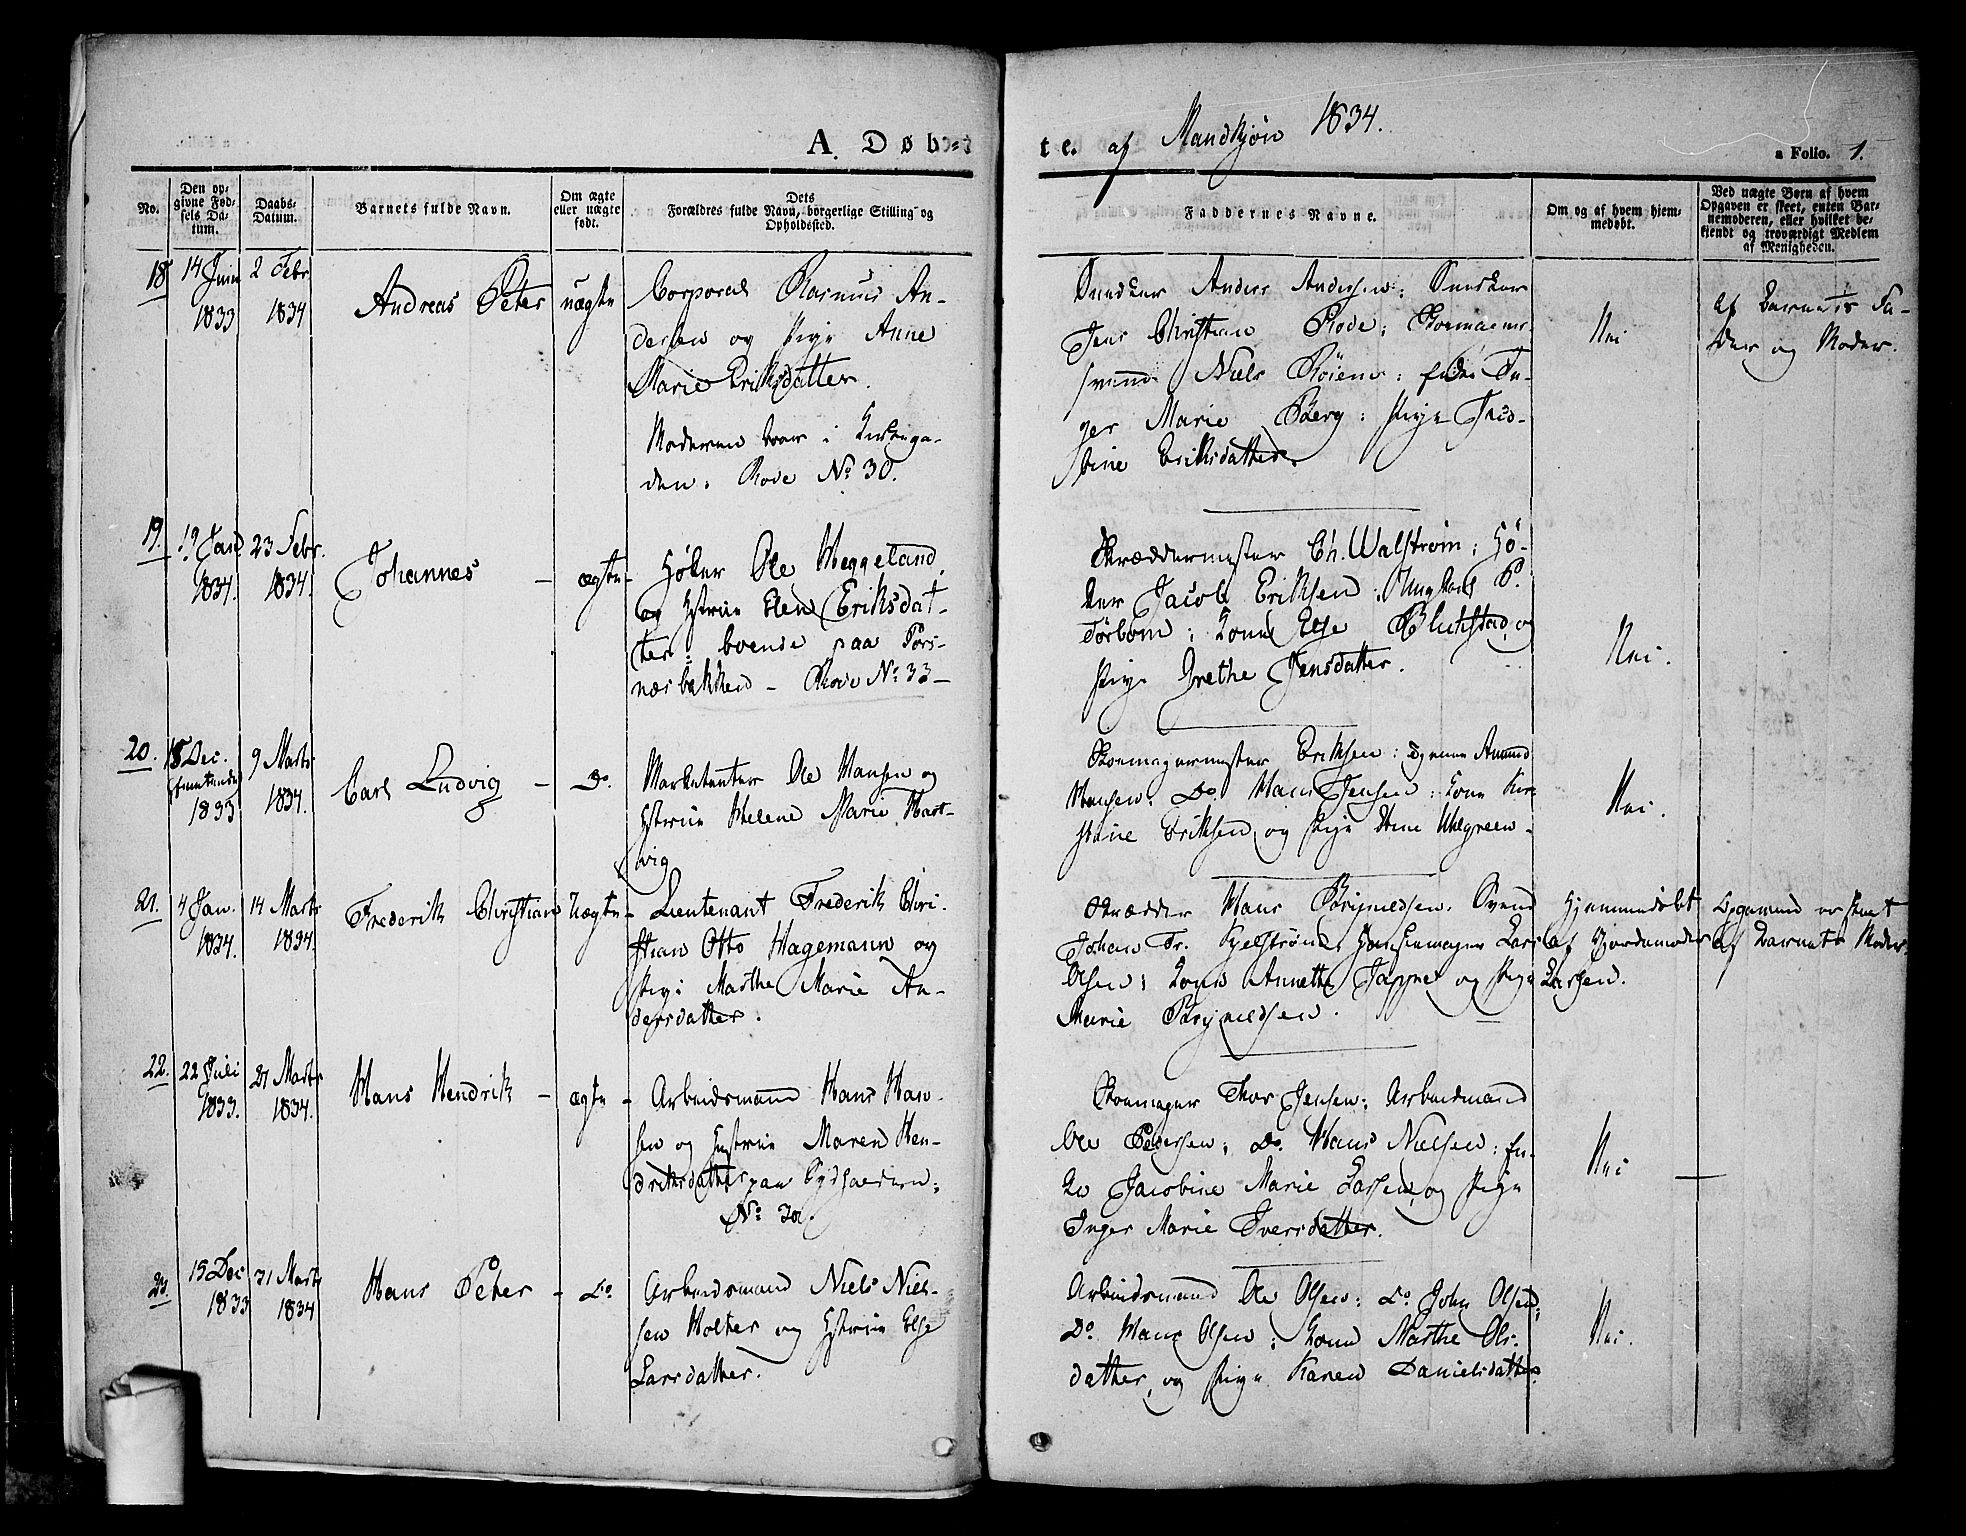 A. Døbte. af Mandkjøn 1834.
a Folio. 1.
No.
Den opgivne Fødsels Datum.
Daabs-Datum.
Barnets fulde Navn.
Om ægte eller uægte født.
Dets Forældres fulde Navn, borgerlige Stilling og Opholdssted.
Faddernes Navne.
Om og af hvem hjemmedøbt.
Ved uægte Børn af hvem Opgaven er skeet, enten Barnemoderen, eller hvilket bekjendt og troværdigt Medlem af Menigheden.
18
14 Juni
1833
2 Febr
1834
Andreas Peter
uægte
Corporal Rasmus An-
dersen og Pige Anne
Marie Eriksdatter.
Moderen boer i
den. Rode No 30.
Snedker Anders Andersen: Snedker
Jens Christian Rode; Skoemager-
svend Niels
ger Marie Berg: Pige Jaco-
bine Eriksdatter.
Nei
af Barnets Fa-
der og Moder.
19.
19 Jan
1834.
23 Febr.
1834.
Johannes -
ægte -
Høker Ole Heggeland,
og Hstrue Elen Eriksdat-
ter; boende paa Tors-
næsbakken - Rode No 33 -
Skræddermester Ch. Walstrøm; Hø-
ker Jacob Eriksen;
Tørbom; Kone Else og
Pige Grethe Jensdatter.
Nei.
20.
18 Dec.
1833
9 Marts
1834.
Carl Ludvig -
Do.
Marketenter Ole Hansen og
Hstrue Helene Marie Hart-
vig
Skoemagermester Eriksen: Amund
Hansen; Do Hans Jensen; Kone Kir-
stine Eriksen og Pige
Nei.
21.
4 Jan.
1834.
14 Marts
1834.
Frederik Christian
Uægte -
Lieutenant Frederik Chri-
stian Otto Hagemann og
Pige Marthe Marie An-
dersdatter.
Skrædder Hans Brynildsen. Svend
Johan Fr. Kjelstrøm, Lars
Olsen; Kone Annette og Pige
Marie Brynildsen.
Hjemmedøbt
af Gjordemoder
Larsen.
Opgavend er skeet
af Barnets Moder.
22.
22 Juli
1833.
21 Marts
1834.
Hans Hendrik -
ægte -
Arbeidsmand Hans Han-
sen og Hustrue Maren Hen-
driksdatter paa
Skoemager Thor Jensen; Arbeidsmand
Ole Pedersen; Do. Hans Nielsen; En-
ke Jacobine Marie Larsen, og Pige
Inger Marie Iversdatter.
Nei
23.
15 Dec
1833
31 Marts
1834
Hans Peter -
Do.
Arbeidsmand Niels Niel-
sen Holter og Hstrue Else
Larsdatter.
Arbeidsmand Ole Olsen; Do. John Olsen;
Do. Hans Olsen; Kone Marthe Ols-
datter, og Pige Karen Danielsdatter
Nei.